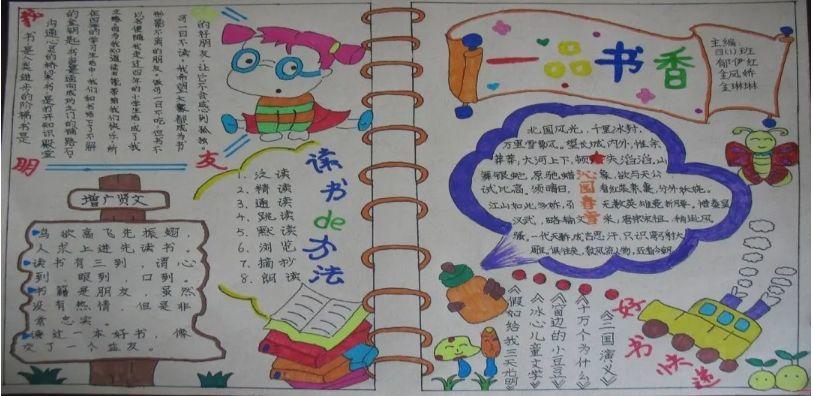 一品书香
主编:
四(1)班
郁伊虹
金凤娇
金琳琳
北国风光,千里冰封,
万里雪飘。望长城内外,惟余
莽莽,大河上下,顿失滔滔。山
舞银蛇,原驰蜡象,欲与天公
试比高。须晴日,看红装素裹,分外妖娆。
江山如此多娇,引无数英雄竞折腰。惜秦皇
汉武,略输文采,唐宗宋祖,稍逊风
骚。一代天骄,成吉思汗,只识弯弓射大
雕。俱往矣,数风流人物,还看今朝。
沁园春雪
好书快递
《三国演义》
《十万个为什么》
《窗边的小豆豆》
《冰心儿童文学》
《假如给我三天光明》
读书de方法
1. 泛读
2. 精读
3. 通读
4. 跳读
5. 默读
6. 浏览
7. 摘抄
8. 朗读
书是人类进步的阶梯书是
沟通心灵的桥梁书是打开知识殿堂
的好朋友,让它不会感到孤独。
友
增广贤文
鸟欲高飞先振翅,
人求上进先读书。
读书有三到,谓心
到,眼到,口到。
书籍是朋友,虽然
没有热情,但是非
常忠实。
读过一本好书,像
交了一个益友。